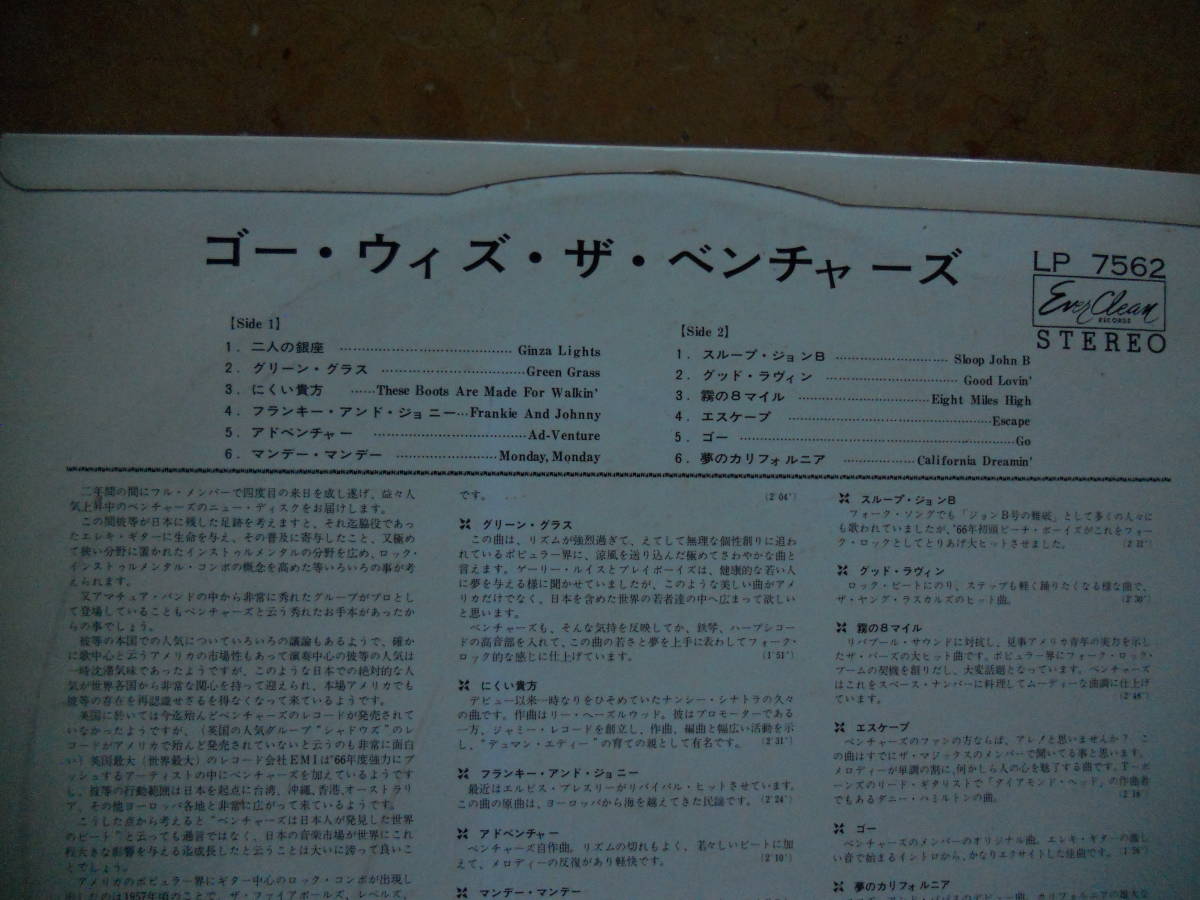 ゴー・ウィズ・ザ・ベンチャーズ
LP 7562
Ever Clean
RECORDS
STEREO
【Side 1】
1. 二人の銀座 Ginza Lights
2. グリーン・グラス Green Grass
3. にくい貴方 These Boots Are Made For Walkin'
4. フランキー・アンド・ジョニー Frankie And Johnny
5. アドベンチャー Ad-Venture
6. マンデー・マンデー Monday, Monday
【Side 2】
1. スループ・ジョンB Sloop John B
2. グッド・ラヴィン Good Lovin'
3. 霧の8マイル Eight Miles High
4. エスケープ Escape
5. ゴー Go
6. 夢のカリフォルニア California Dreamin'
二年間の間にフル・メンバーで四度目の来日を成し遂げ、益々人
気上昇中のベンチャーズのニュー・ディスクをお届けします。
この間彼等が日本に残した足跡を考えますと、それ迄脇役であっ
たエレキ・ギターに生命を与え、その普及に寄与したこと、又極め
て狭い分野に置かれたインストゥルメンタルの分野を広め、ロック・
インストゥルメンタル・コンボの概念を高めた等いろいろの事が考
えられます。
又アマチュア・バンドの中から非常に秀れたグループがプロとし
て登場していることもベンチャーズと云う秀れたお手本があったか
らの事でしょう。
彼等の本国での人気についていろいろの議論もあるようで、確か
に歌中心と云うアメリカの市場性もあって演奏中心の彼等の人気は
一時沈滞気味であったようですが、このような日本での絶対的な人
気が世界各国から非常な関心を持って迎えられ、本場アメリカでも
彼等の存在を再認識せざるを得なくなって来ているようです。
英国に於いては今迄殆んどベンチャーズのレコードが発売されて
いなかったようですが、(英国の人気グループ"シャドウズ"のレ
コードがアメリカで殆んど発売されていないと云うのも非常に面白
い) 英国最大 (世界最大) のレコード会社EMIは'66年度強力にプ
ッシュするアーティストの中にベンチャーズを加えているようです
し、彼等の行動範囲は日本を起点に台湾、沖縄、香港、オーストラリ
ア、その他ヨーロッパ各地と非常に広がって来ているようです。
こうした点から考えると"ベンチャーズは日本人が発見した世界
のビート"と云っても過言ではなく、日本の音楽市場が世界にこれ
程大きな影響を与える迄成長したと云うことは大いに誇って良いこ
とでしょう。
アメリカのポピュラー界にギター中心のロック・コンボが出現し
たのは1957年頃のことで、ザ・ファイアボールズ、レベルズ、
です。 (2'04")
グリーン・グラス
この曲は、リズムが強烈過ぎて、えてして無理な個性創りに追わ
れているポピュラー界に、涼風を送り込んだ極めてさわやかな曲と
言えます。ゲーリー・ルイスとプレイボーイズは、健康的な若い人
に夢を与える様に聞かせていましたが、このような美しい曲がアメ
リカだけでなく、日本を含めた世界の若者達の中へ広まって欲しい
と思います。
ベンチャーズも、そんな気持を反映してか、鉄琴、ハープシコー
ドの高音部を入れて、この曲の若さと夢を上手に表わしてフォーク・
ロック的な感じに仕上げています。 (1'51")
にくい貴方
デビュー以来一時なりをひそめていたナンシー・シナトラの久々
の曲です。作曲はリー・ヘーズルウッド。彼はプロモーターである
一方、ジャミー・レコードを創立し、作曲、編曲と幅広い活動を示
し、"デュマン・エディー"の育ての親として有名です。 (2'31")
フランキー・アンド・ジョニー
最近はエルビス・プレスリーがリバイバル・ヒットさせています。
この曲の原曲は、ヨーロッパから海を越えてきた民謡です。 (2'24")
アドベンチャー
ベンチャーズ自作曲。リズムの切れもよく、若々しいビートに加
えて、メロディーの反復があり軽快です。 (2'10")
マンデー・マンデー
スループ・ジョンB
フォーク・ソングでも「ジョンB号の難破」として多くの人々に
も歌われていましたが、'66年初頭ビーチ・ボーイズがこれをフォー
ク・ロックとしてとりあげ大ヒットさせました。
グッド・ラヴィン
ロック・ビートにのり、ステップも軽く踊りたくなる様な曲で、
ザ・ヤング・ラスカルズのヒット曲。 (2'30")
霧の8マイル
リバプール・サウンドに対抗し、見事アメリカ青年の実力を示し
たザ・バーズの大ヒット曲です。ポピュラー界にフォーク・ロック・
ブームの契機を創りだし、大変話題となっています。ベンチャーズ
はこれをスペース・ナンバーに料理してムーディーな曲調に仕上げ
ています。 (2'48")
エスケープ
ベンチャーズのファンの方ならば、アレッと思いませんか? こ
の曲はすでにザ・マジックスのメンバーで聞いてる事と思います。
メロディーが単調の割に、何かしら人の心を魅了する曲です。T-ボ
ーンズのリード・ギタリストで「ダイアモンド・ヘッド」の作曲者
でもあるダニー・ハミルトンの曲。
ゴー
ベンチャーズのメンバーのオリジナル曲。エレキ・ギターの激し
い音で始まるイントロから、かなりエクサイトした佳曲です。
夢のカリフォルニア